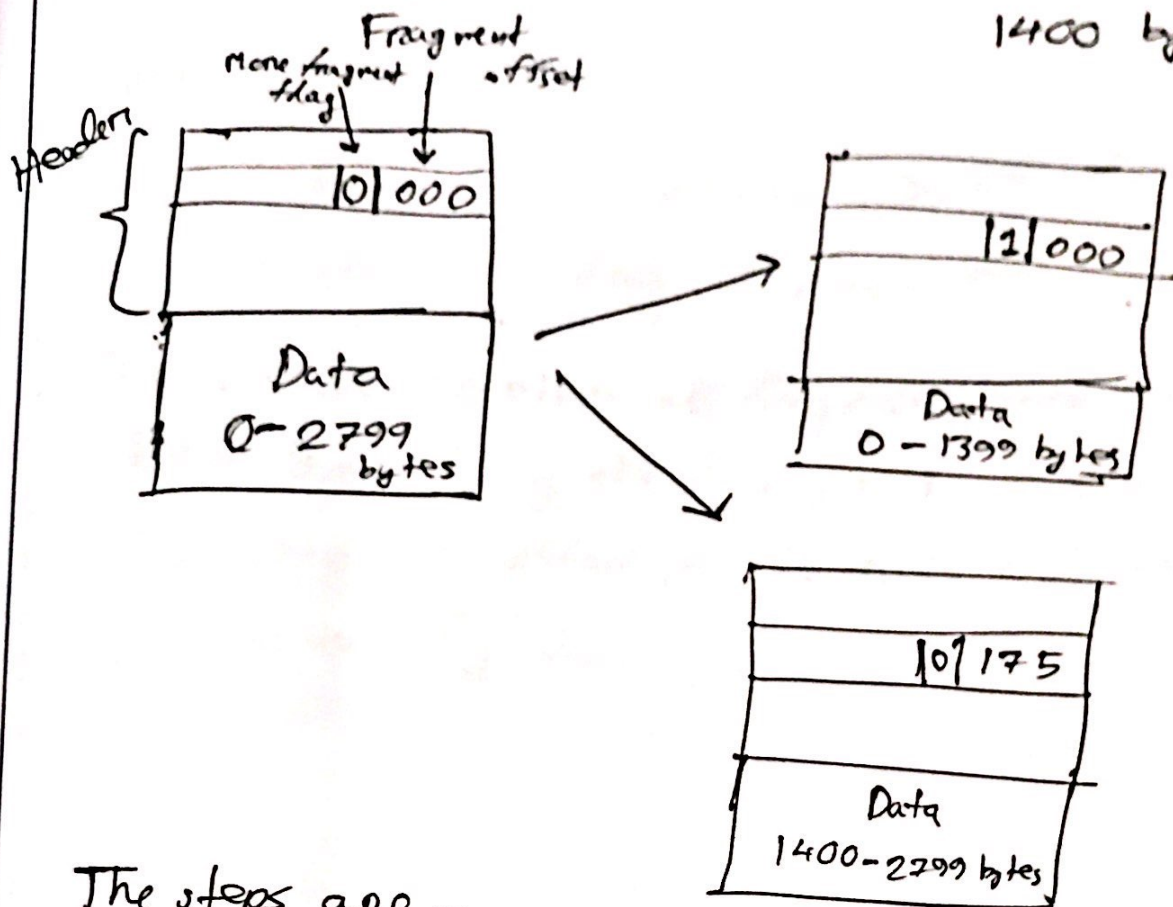 1400 by
Fragment
offset
More fragment
flag
Header
|0| 000
Data
0-2799
bytes
|1| 000
Data
0-1399 bytes
|0| 175
Data
1400-2799 bytes
The steps are -